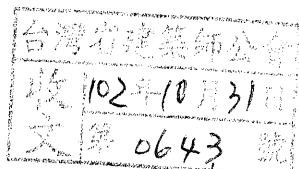 台灣省建築師公會
收文
102年10月31日
第0643號